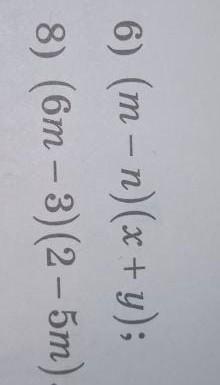 6) (m − n)(x + y);
8) (6m − 3)(2 − 5m)